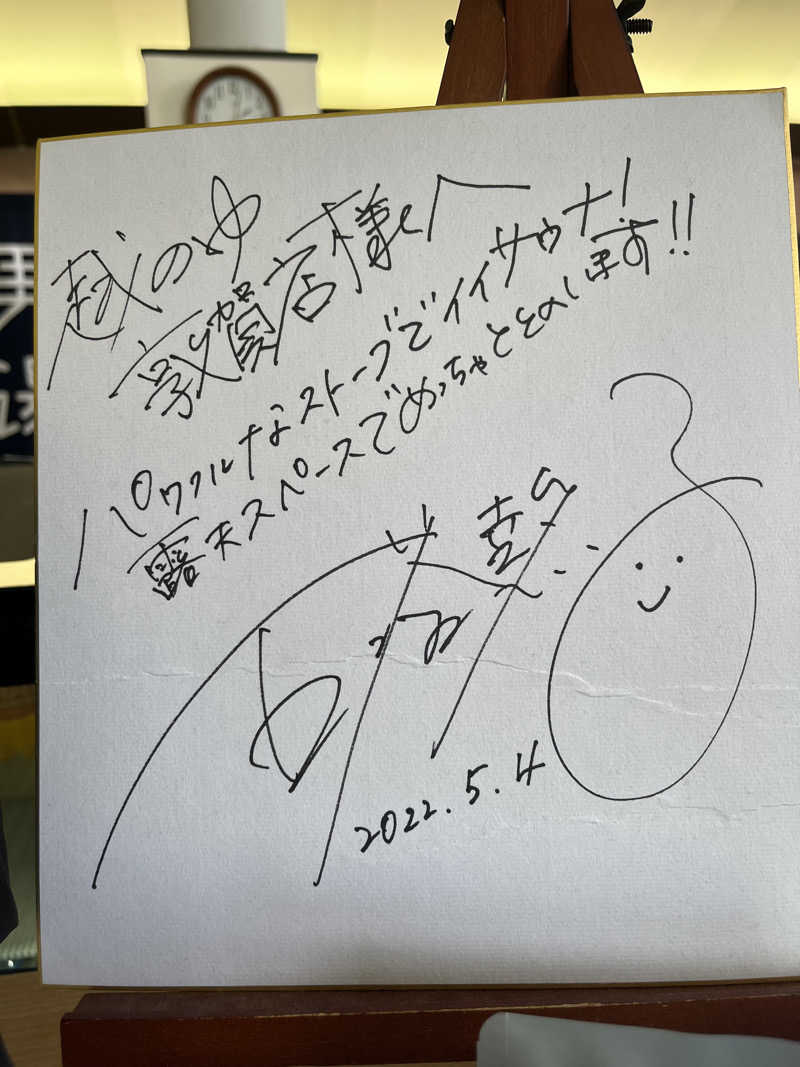 越のゆ
敦賀店様へ
パワフルなストーブでイイサウナ!
露天スペースでめっちゃととのいます!!
2022.5.4